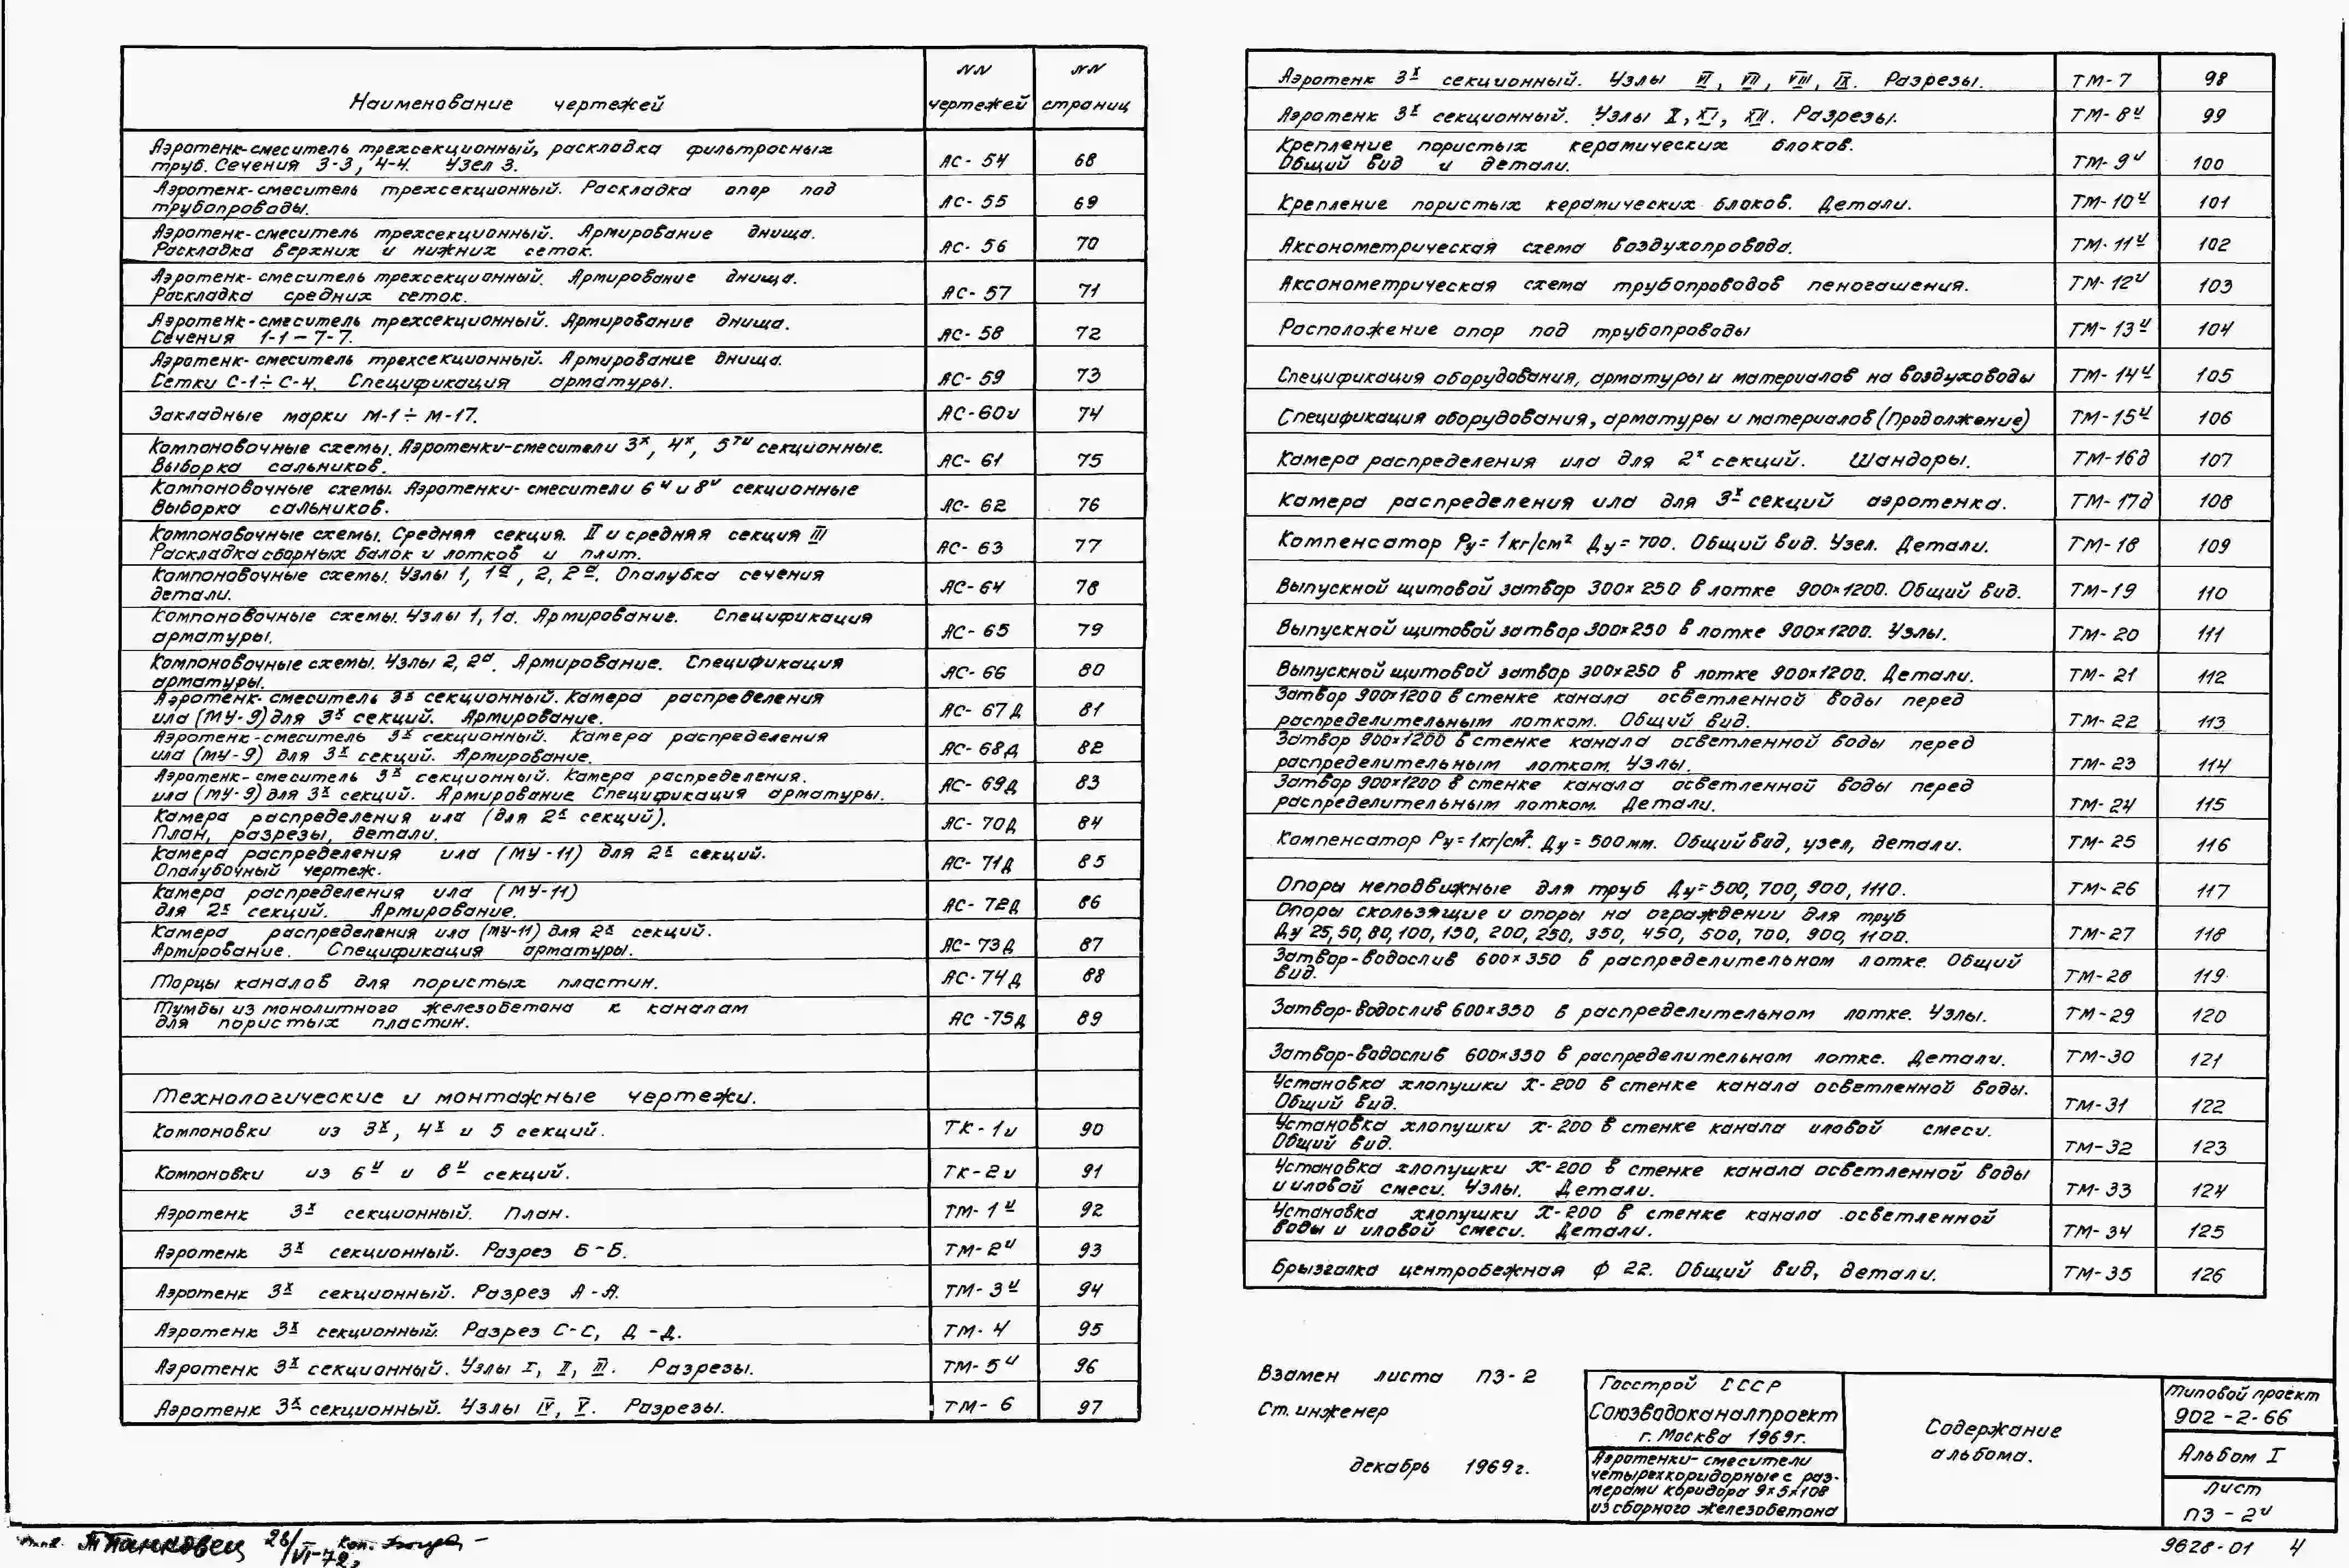 Наименование чертежей NN чертежей NN страниц
Аэротенк-смеситель трехсекционный, раскладка фильтросных
труб. Сечения 3-3, 4-4. Узел 3. АС-54 68
Аэротенк-смеситель трехсекционный. Раскладка опор под
трубопроводы. АС-55 69
Аэротенк-смеситель трехсекционный. Армирование днища.
Раскладка верхних и нижних сеток. АС-56 70
Аэротенк-смеситель трехсекционный. Армирование днища.
Раскладка средних сеток. АС-57 71
Аэротенк-смеситель трехсекционный. Армирование днища.
Сечения 1-1 – 7-7. АС-58 72
Аэротенк-смеситель трехсекционный. Армирование днища.
Сетки С-1÷С-4. Спецификация арматуры. АС-59 73
Закладные марки М-1÷М-17. АС-60и 74
Компоновочные схемы. Аэротенки-смесители 3х, 4х, 5ти секционные.
Выборка сальников. АС-61 75
Компоновочные схемы. Аэротенки-смесители 6и и 8и секционные
Выборка сальников. АС-62 76
Компоновочные схемы. Средняя секция II и средняя секция III
Раскладка сборных балок и лотков и плит. АС-63 77
Компоновочные схемы. Узлы 1, 1а, 2, 2а. Опалубка сечения
детали. АС-64 78
Компоновочные схемы. Узлы 1, 1а. Армирование. Спецификация
арматуры. АС-65 79
Компоновочные схемы. Узлы 2, 2а. Армирование. Спецификация
арматуры. АС-66 80
Аэротенк-смеситель 3х секционный. Камера распределения
ила (МУ-9) для 3х секций. Армирование. АС-67Д 81
Аэротенк-смеситель 3х секционный. Камера распределения
ила (МУ-9) для 3х секций. Армирование. АС-68Д 82
Аэротенк-смеситель 3х секционный. Камера распределения.
ила (МУ-9) для 3х секций. Армирование Спецификация арматуры. АС-69Д 83
Камера распределения ила (для 2х секций).
План, разрезы, детали. АС-70Д 84
Камера распределения ила (МУ-11) для 2х секций.
Опалубочный чертеж. АС-71Д 85
Камера распределения ила (МУ-11)
для 2х секций. Армирование. АС-72Д 86
Камера распределения ила (МУ-11) для 2х секций.
Армирование. Спецификация арматуры. АС-73Д 87
Торцы каналов для пористых пластин. АС-74Д 88
Тумбы из монолитного железобетона к каналам
для пористых пластин. АС-75Д 89
Технологические и монтажные чертежи.
Компоновки из 3х, 4х и 5 секций. ТК-1и 90
Компоновки из 6и и 8и секций. ТК-2и 91
Аэротенк 3х секционный. План. ТМ-1и 92
Аэротенк 3х секционный. Разрез Б-Б. ТМ-2и 93
Аэротенк 3х секционный. Разрез А-А. ТМ-3и 94
Аэротенк 3х секционный. Разрез С-С, Д-Д. ТМ-4 95
Аэротенк 3х секционный. Узлы I, II, III. Разрезы. ТМ-5и 96
Аэротенк 3х секционный. Узлы IV, V. Разрезы. ТМ-6 97
Аэротенк 3х секционный. Узлы VI, VII, VIII, IX. Разрезы. ТМ-7 98
Аэротенк 3х секционный. Узлы X, XI, XII. Разрезы. ТМ-8и 99
Крепление пористых керамических блоков.
Общий вид и детали. ТМ-9и 100
Крепление пористых керамических блоков. Детали. ТМ-10и 101
Аксонометрическая схема воздухопровода. ТМ-11и 102
Аксонометрическая схема трубопроводов пеногашения. ТМ-12и 103
Расположение опор под трубопроводы ТМ-13и 104
Спецификация оборудования, арматуры и материалов на воздуховоды ТМ-14и 105
Спецификация оборудования, арматуры и материалов (Продолжение) ТМ-15и 106
Камера распределения ила для 2х секций. Шандоры. ТМ-16д 107
Камера распределения ила для 3х секций аэротенка. ТМ-17д 108
Компенсатор Ру=1кг/см² Ду=700. Общий вид. Узел. Детали. ТМ-18 109
Выпускной щитовой затвор 300х250 в лотке 900х1200. Общий вид. ТМ-19 110
Выпускной щитовой затвор 300х250 в лотке 900х1200. Узлы. ТМ-20 111
Выпускной щитовой затвор 300х250 в лотке 900х1200. Детали. ТМ-21 112
Затвор 900х1200 в стенке канала осветленной воды перед
распределительным лотком. Общий вид. ТМ-22 113
Затвор 900х1200 в стенке канала осветленной воды перед
распределительным лотком. Узлы. ТМ-23 114
Затвор 900х1200 в стенке канала осветленной воды перед
распределительным лотком. Детали. ТМ-24 115
Компенсатор Ру=1кг/см². Ду=500мм. Общий вид, узел, детали. ТМ-25 116
Опоры неподвижные для труб Ду=500, 700, 900, 1110. ТМ-26 117
Опоры скользящие и опоры на ограждении для труб
Ду 25, 50, 80, 100, 150, 200, 250, 350, 450, 500, 700, 900, 1100. ТМ-27 118
Затвор-водослив 600х350 в распределительном лотке. Общий
вид. ТМ-28 119
Затвор-водослив 600х350 в распределительном лотке. Узлы. ТМ-29 120
Затвор-водослив 600х350 в распределительном лотке. Детали. ТМ-30 121
Установка хлопушки Х-200 в стенке канала осветленной воды.
Общий вид. ТМ-31 122
Установка хлопушки Х-200 в стенке канала иловой смеси.
Общий вид. ТМ-32 123
Установка хлопушки Х-200 в стенке канала осветленной воды
и иловой смеси. Узлы. Детали. ТМ-33 124
Установка хлопушки Х-200 в стенке канала осветленной
воды и иловой смеси. Детали. ТМ-34 125
Брызгалка центробежная ф 22. Общий вид, детали. ТМ-35 126
Взамен листа ПЗ-2
Ст. инженер
декабрь 1969г.
Госстрой СССР
Союзводоканалпроект
г. Москва 1969г.
Аэротенки-смесители
четырехкоридорные с раз-
мерами коридора 9х5х108
из сборного железобетона
Содержание
альбома.
Типовой проект
902-2-66
Альбом I
Лист
ПЗ-2и
9628-01 4
26/VI-72г